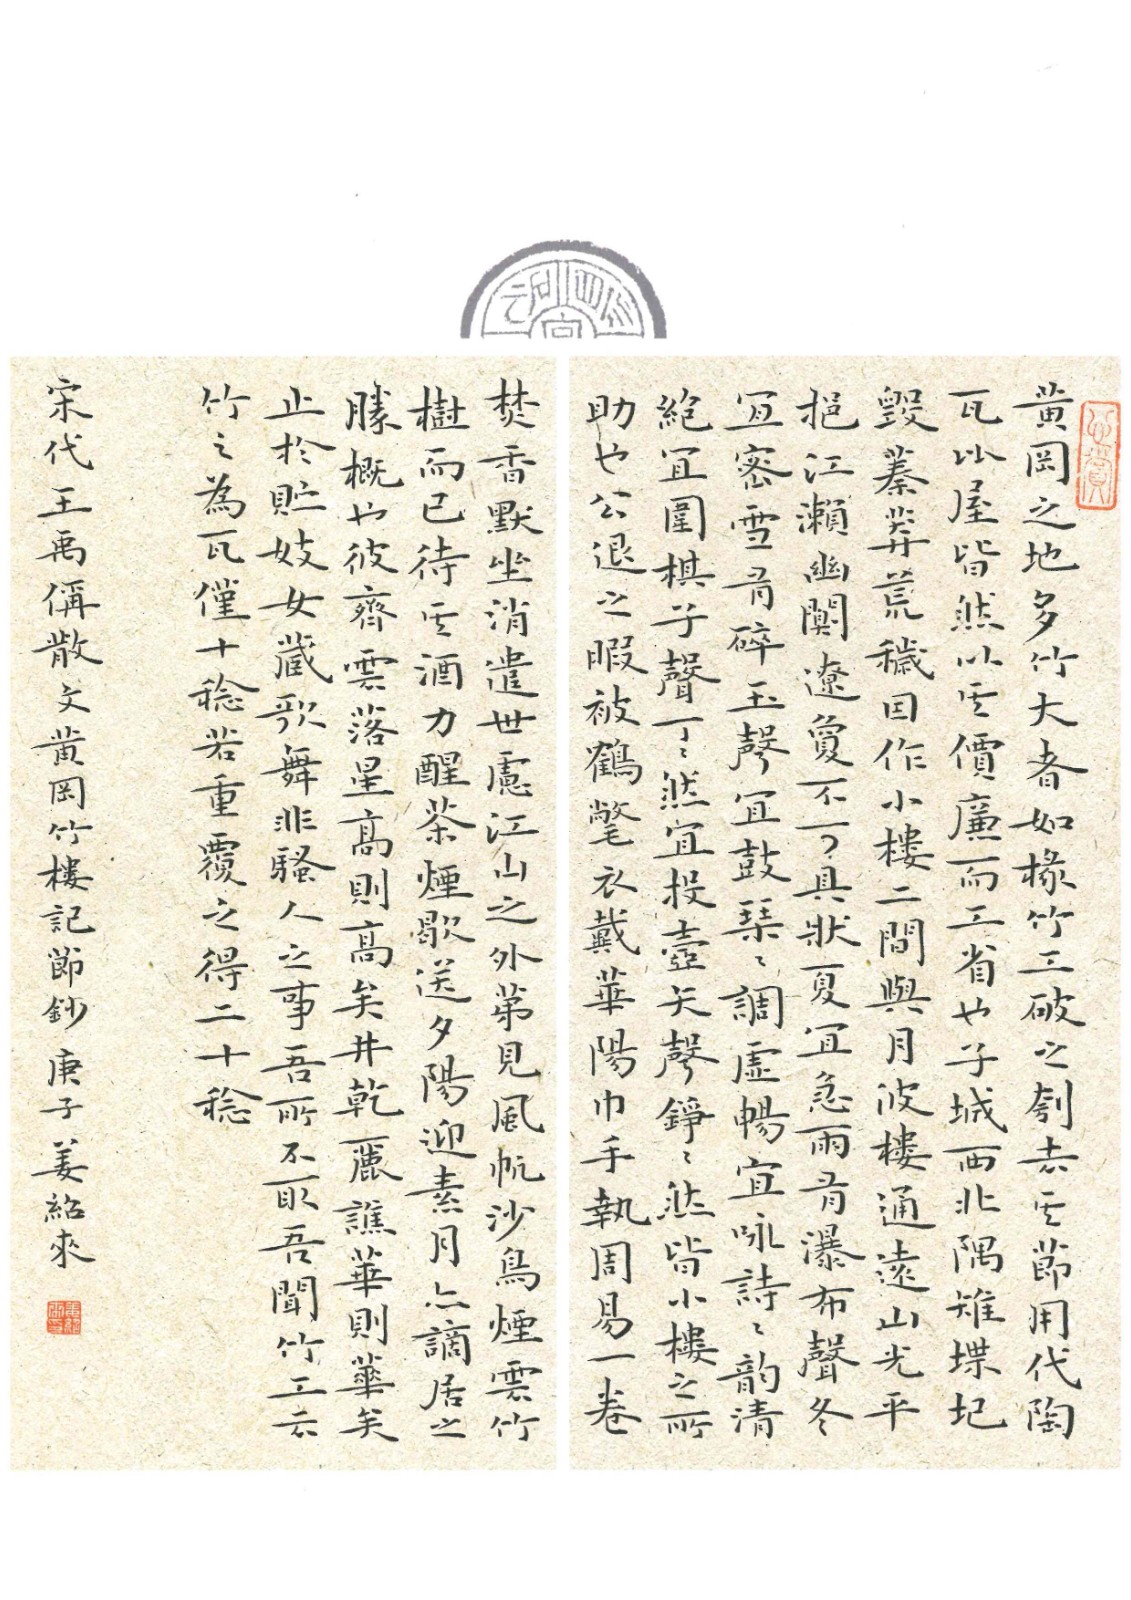 心賞
黃岡之地多竹大者如椽竹工破之刳去其節用代陶
瓦比屋皆然以其價廉而工省也子城西北隅雉堞圮
毀蓁莽荒穢因作小樓二間與月波樓通遠山光平
挹江瀨幽闃遼夐不可具狀夏宜急雨有瀑布聲冬
宜密雪有碎玉聲宜鼓琹〻調虛暢宜咏詩〻韵清
絕宜圍棋子聲丁〻然宜投壺矢聲錚〻然皆小樓之所
助也公退之暇被鶴氅衣戴華陽巾手執周易一卷
焚香默坐消遣世慮江山之外第見風帆沙鳥煙雲竹
樹而已待其酒力醒茶煙歇送夕陽迎素月亦謫居之
勝概也彼齊雲落星高則高矣井乾麗譙華則華矣
止於貯妓女藏歌舞非騷人之事吾所不取吾聞竹工云
竹之為瓦僅十稔若重覆之得二十稔
宋代王禹偁散文黃岡竹樓記節鈔 庚子 姜紹來